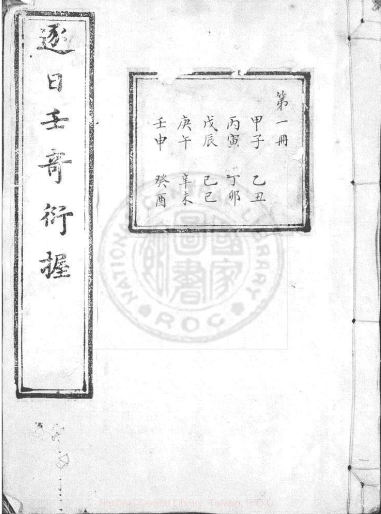 逐日壬奇衍握
第一冊
甲子 乙丑
丙寅 丁卯
戊辰 己巳
庚午 辛未
壬申 癸酉
國家圖書
NATIONAL
LIBRARY
ROC